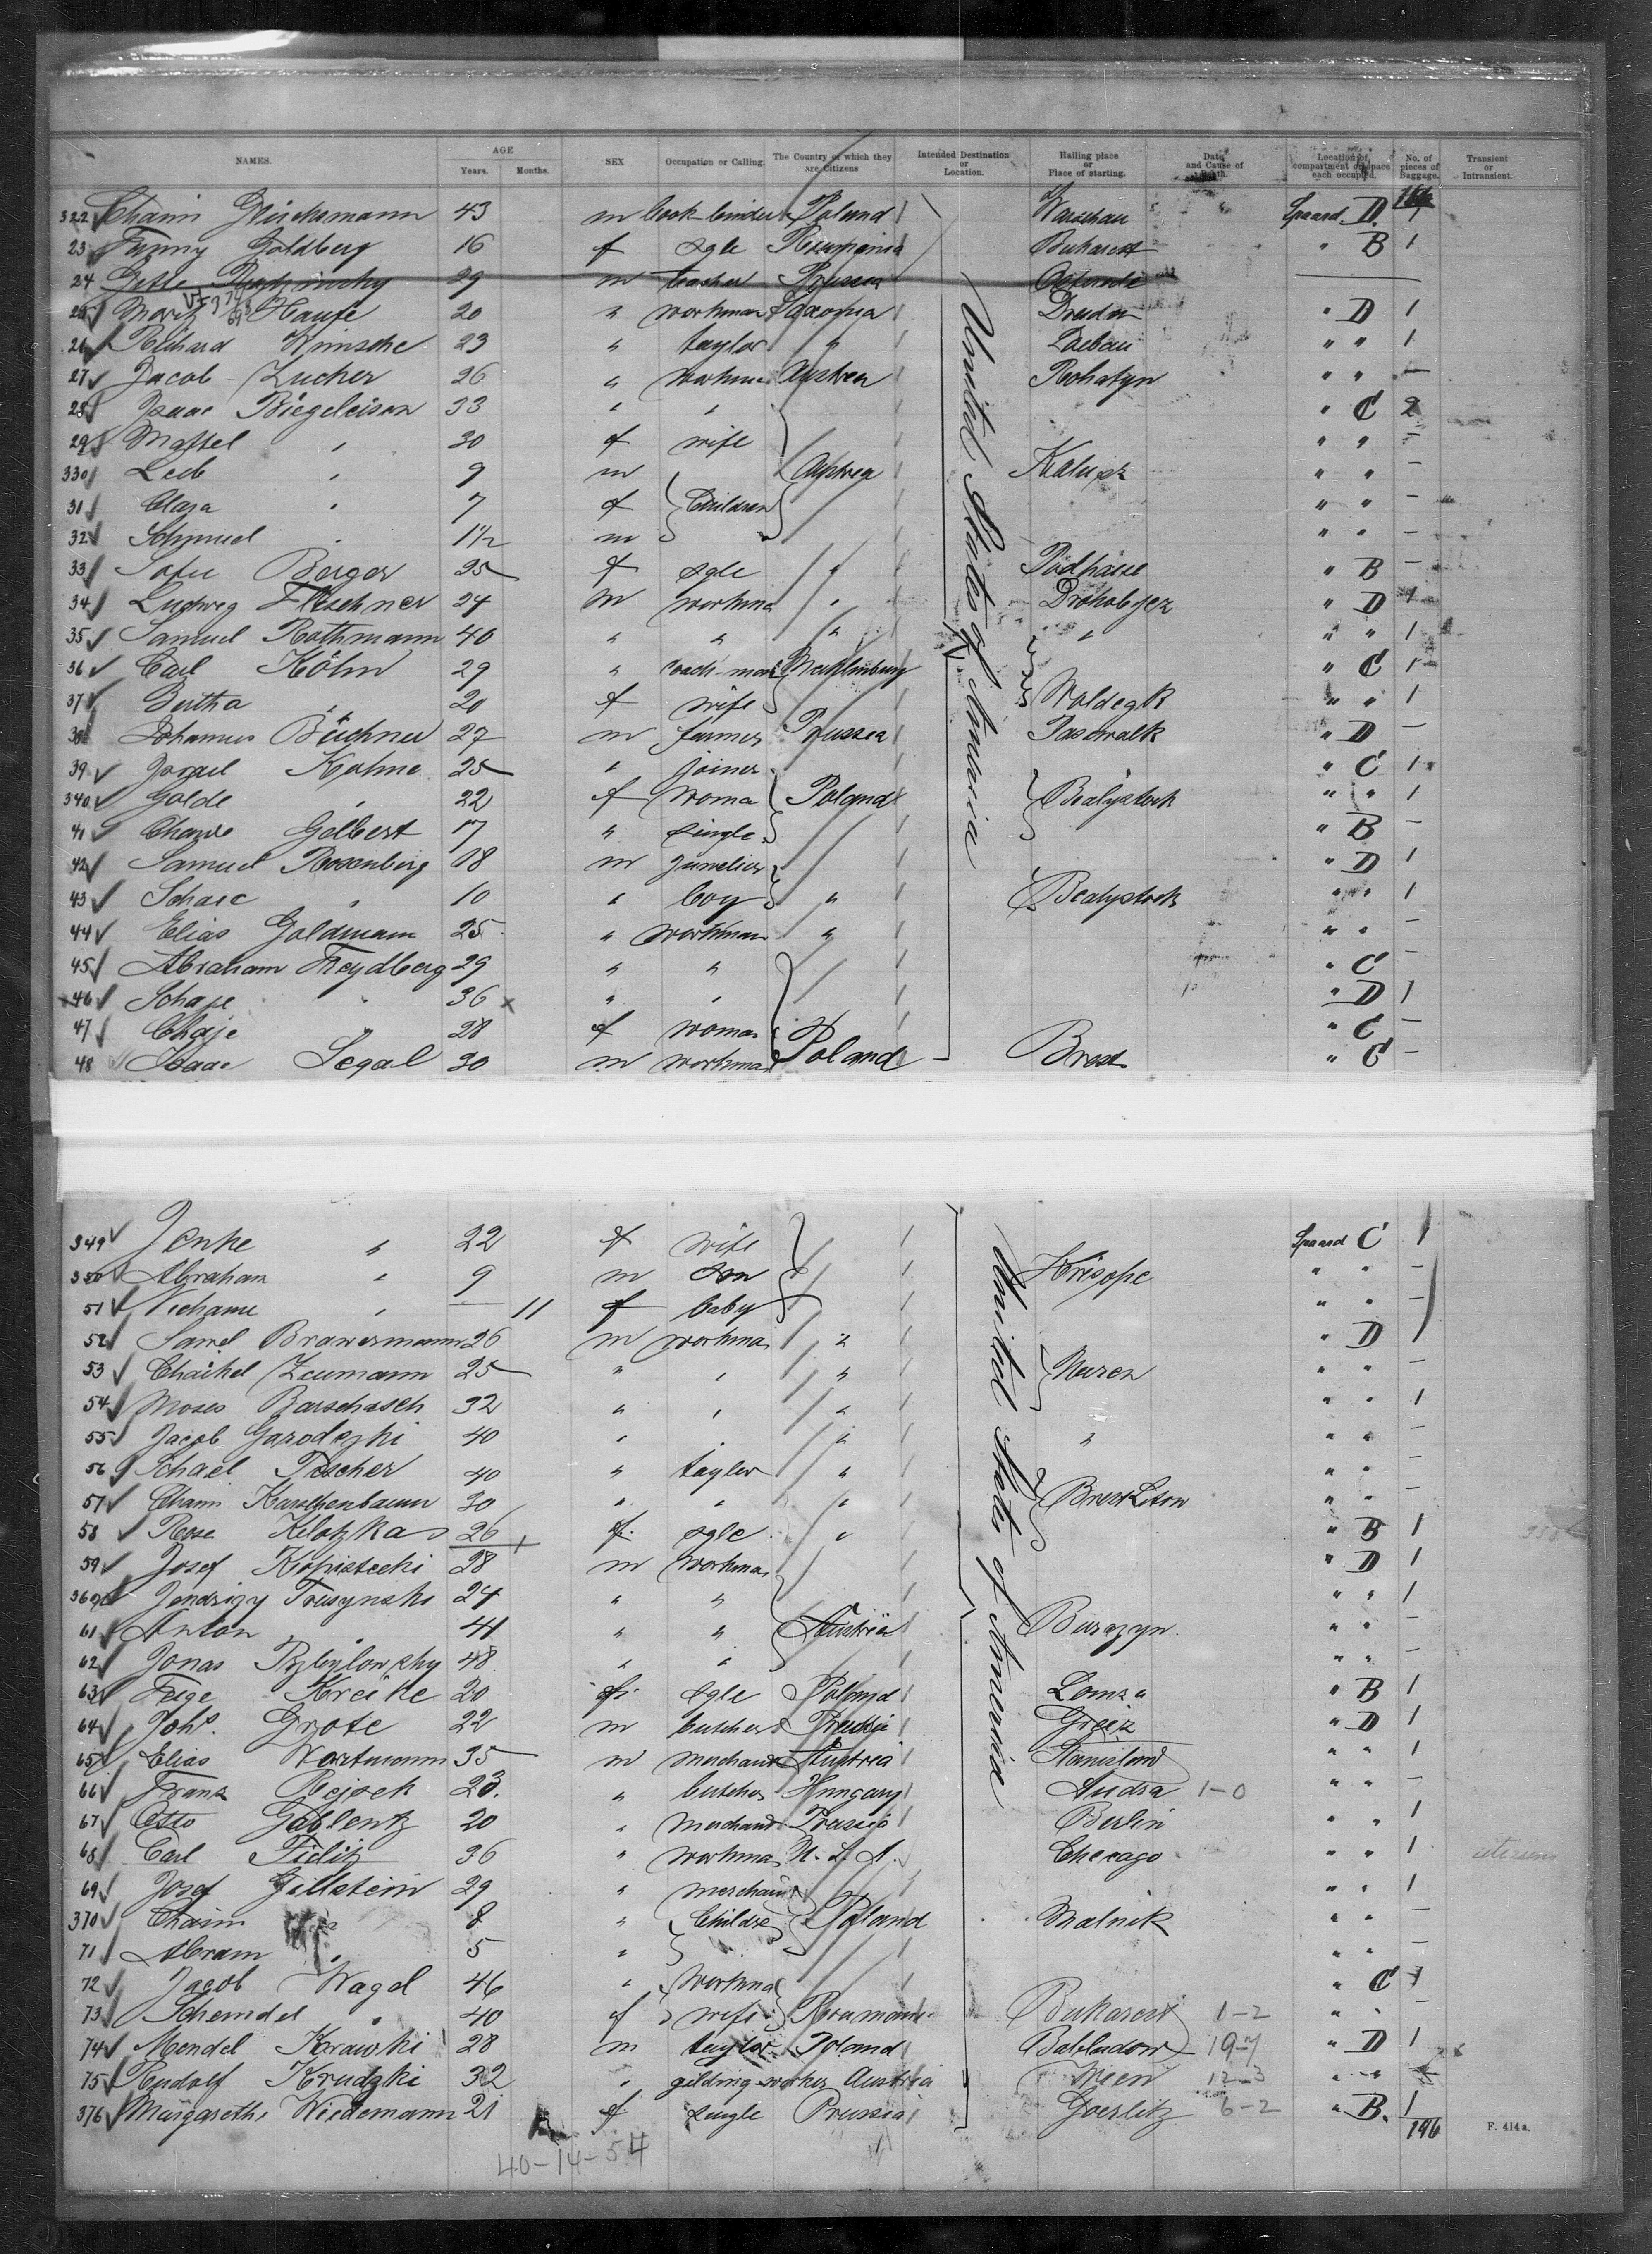 NAMES. AGE Years. Months. SEX Occupation or Calling. The Country of which they are Citizens Intended Destination or Location. Hailing place or Place of starting. Date and Cause of Death. Location of compartment or space each occupied. No. of pieces of Baggage. Transient or Intransient.
322 Chaim Glücksmann 43 m bookbinder Poland Warschau D 1
23 Fanny Goldberg 16 f sgle Roumania Bukarest " B 1
24 29 m teacher Prussia
25 Moritz Haufe 20 " workman Saxonia Dresden " D 1
26 Richard 23 " taylor " Loebau " " 1
27 Jacob Zucker 26 " workman Austria Rohatyn " " —
28 Isaac Biegeleisen 33 " " " C 2
29 Mattel " 30 f wife " " —
330 Leib " 9 m Austria Kalusz " " —
31 Clara " 7 f Children " " —
32 Schmiel " 1½ m " " —
33 Sofie Berger 25 f sgle " Podhaise " B —
34 Ludwig Fleschner 24 m workma " Drohobycz " D 1
35 Samuel Rothmann 40 " " " " " " 1
36 Carl Köhn 29 " coach-man Mecklinburg " C 1
37 Bertha " 20 f wife Woldegk " " 1
38 Johannes Büchner 27 m farmer Prussia Pasewalk " D —
39 Israel Kahme 25 " joiner " C 1
340 Golde " 22 f Woma Poland Bealystock " " 1
41 Gelbert 17 " single " B —
42 Samuel Rosenberg 18 m juwelier " D 1
43 " 10 " boy " Bealystock " " 1
44 Elias Goldmann 25 " workman " " " —
45 Abraham Freydberg 29 " " " C —
46 Schaje " 36 " " " D 1
47 Chaje " 28 f woman " C —
48 Isaac Segal 30 m workman Poland Brest " C —
United States of America
349 Jenke " 22 f wife C 1
350 Abraham " 9 m son " " —
51 Nechame " — 11 f baby " " —
52 26 m workma " " D 1
53 Chaikel Zeumann 25 " " " " " —
54 Moses Barschasch 32 " " " " " 1
55 Jacob Garodezki 40 " " " " " " —
56 Schael Fischer 40 " taylor " " " —
57 Chaim 30 " " " Brest Litow " " —
58 Rose 26 f. sgle " " B 1
59 Josef 28 m workma " D 1
360 24 " " " " 1
61 Anton " 41 " " Austria " " —
62 Jonas 48 " " " " —
63 Feige Kreike 20 f. sgle Poland Lomza " B 1
64 Johs. Grote 22 m butcher Greiz " D 1
65 Elias Wortmann 35 m merchant Austria " " 1
66 Franz Rejsek 23. " butcher Hungary 1-0 " " —
67 Otto Gablentz 20 " merchand Prussia Berlin " " 1
68 Carl 36 " workma U. S. A. Chicago " " 1
69 Josef Gellstein 29 " merchant " " 1
370 Chaim " 8 " Childre Poland " " —
71 Abram " 5 " " " —
72 Jacob Wagal 46 " workma " C 1
73 Scheindel " 40 f wife Roumania Bukarest 1-2 " " —
74 Mendel Krawski 28 m taylor Poland 19-7 " D 1
75 Rudolf Krudzki 32 " gilding-worker Austria Wien 12-3 " "
376 Margarethe Wiedemann 21 f single Prussia Goerlitz 6-2 " B. 1
United States of America
196
F. 414a.
40-14-54